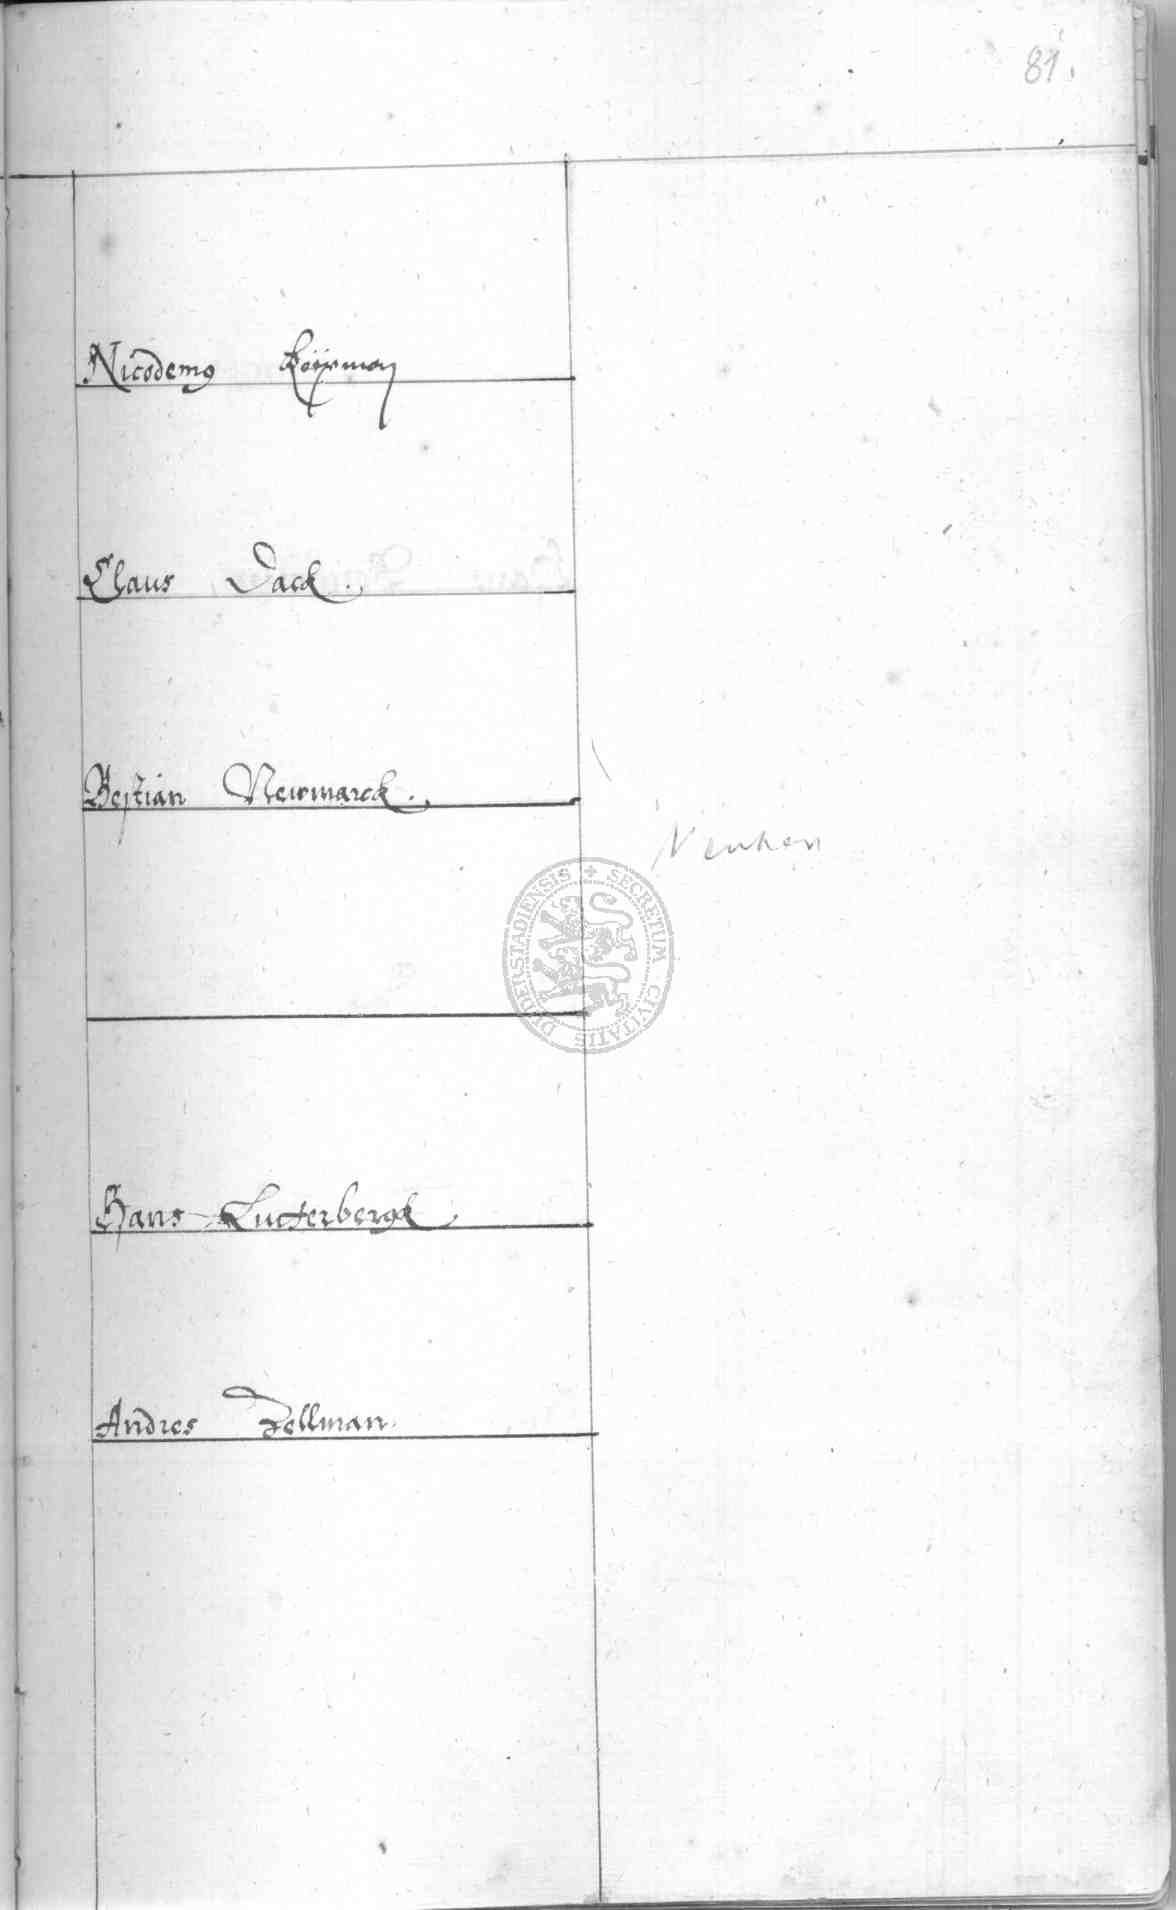 81.
Nicodemq
Claus Dack.
Bestian Newmarck.
SECRETUM CIVITATIS DUDERSTADIENSIS
Hans Lutterbergk
Andres Zellman.